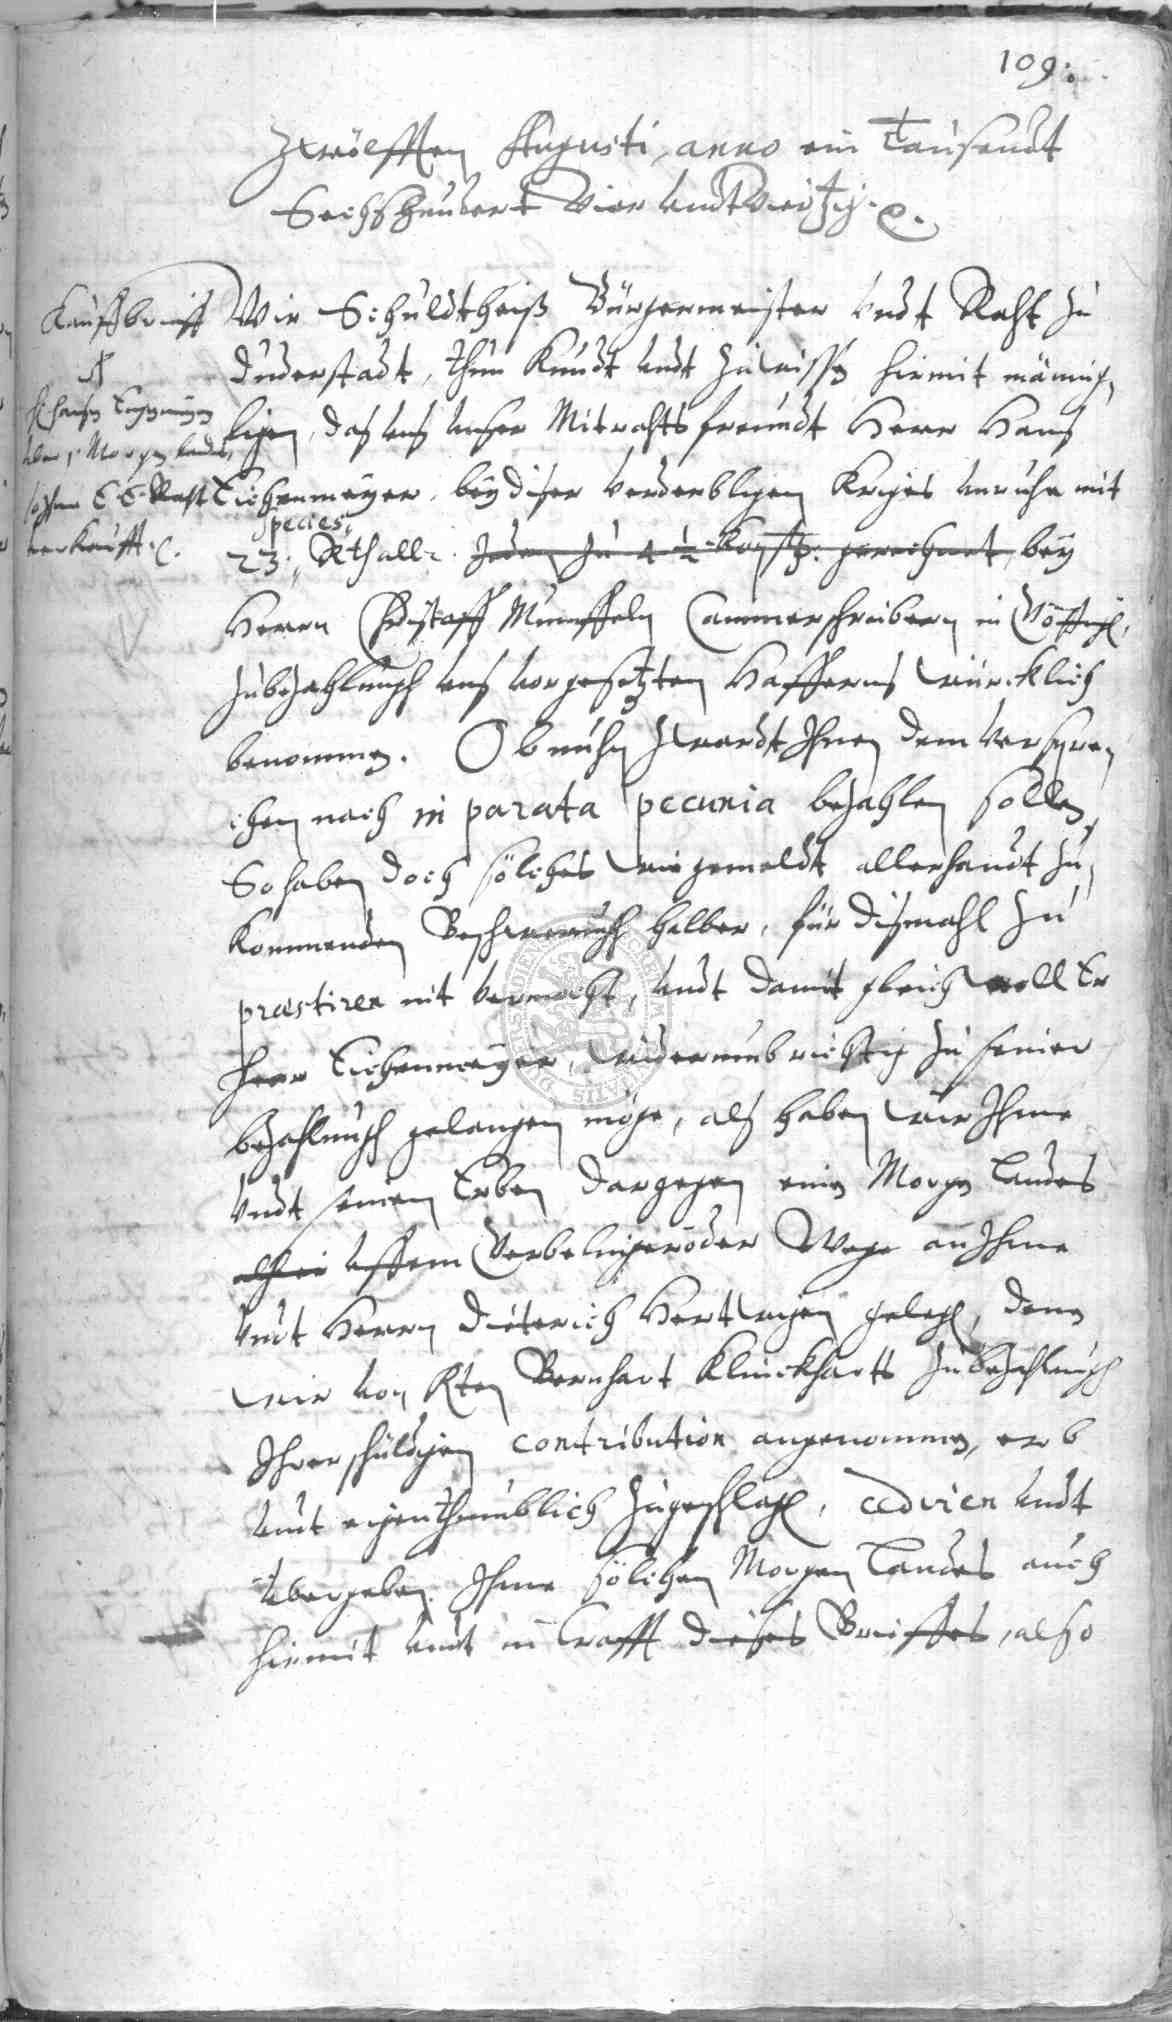 109.
Zwölfften Augusti, anno ein Tausendt
Sechshundert Vier undt Viertzig. ꝛc.
Kauffbrieff
H. Hansen Eichenmeyer
uber 1. Morgen landes,
so ihme E. E. Raht
verkaufft. ꝛc.
Wir Schuldtheiß Bürgermeister Undt Raht zu
Duderstadt, thun Kundt undt zuwissen hiermit männig-
lichen, das uns unser Mitrahtsfreundt Herr Hans
Eichenmeyer, bey diser verderblichen Kriges unruhe mit
species
23. Rthallr. jeden zu 4 ½ gerechnet, bey
Herrn Christoff Cammerschreibern in
zubezahlung uns vorgesetzten Haffers würcklich
benommen. Ob nuhn zwardt Ihnen dem verspre-
chen nach in parata pecunia bezahlen sollen,
So haben doch solches wie gemeldt allerhandt zu-
kommenden Beschwerung halber, für dismahl zu
præstiren nit vermocht, undt damit gleichwoll Er
Herr Eichenmeyer, widerumb richtig zu seiner
bezahlung gelangen möge, als haben wir Ihme
Undt seinen Erben dargegen einen Morgen Landes
alhier uffem Verbelingeröder Wege an Ihme
Undt Herrn Dieterich Hertwigen gelegen, denn
wir von Bernhart Klinckharts zu bezahlung
Ihrer schuldigen contribution angenommen, erb
undt eigenthumblich zugeschlagen, cediren undt
übergeben Ihme solchen Morgen Landes auch
hiermit undt in Crafft dieses Brieffes, also